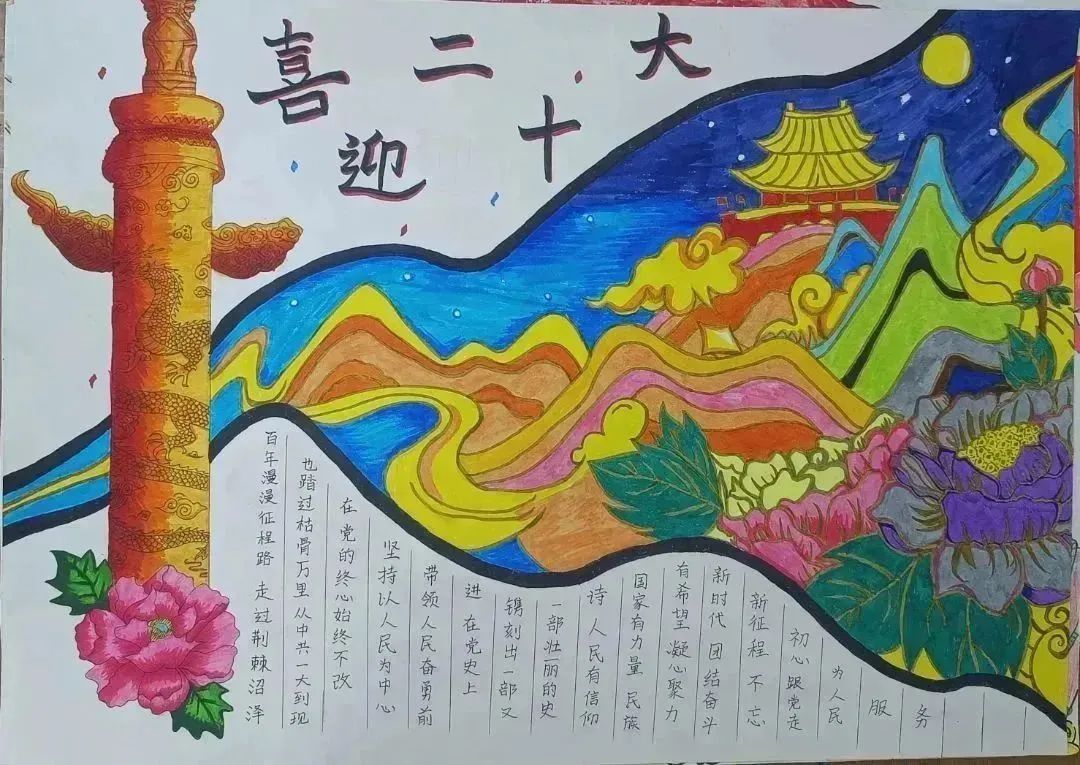 喜迎二十大
百年漫漫征程路 走过荆棘沼泽
也踏过枯骨万里 从中共一大到现
在 党的终心始终不改
坚持以人民为中心
带领人民奋勇前
进 在党史上
镌刻出一部又
一部壮丽的史
诗 人民有信仰
国家有力量 民族
有希望 凝心聚力
新时代 团结奋斗
新征程 不忘
初心跟党走
为人民
服
务